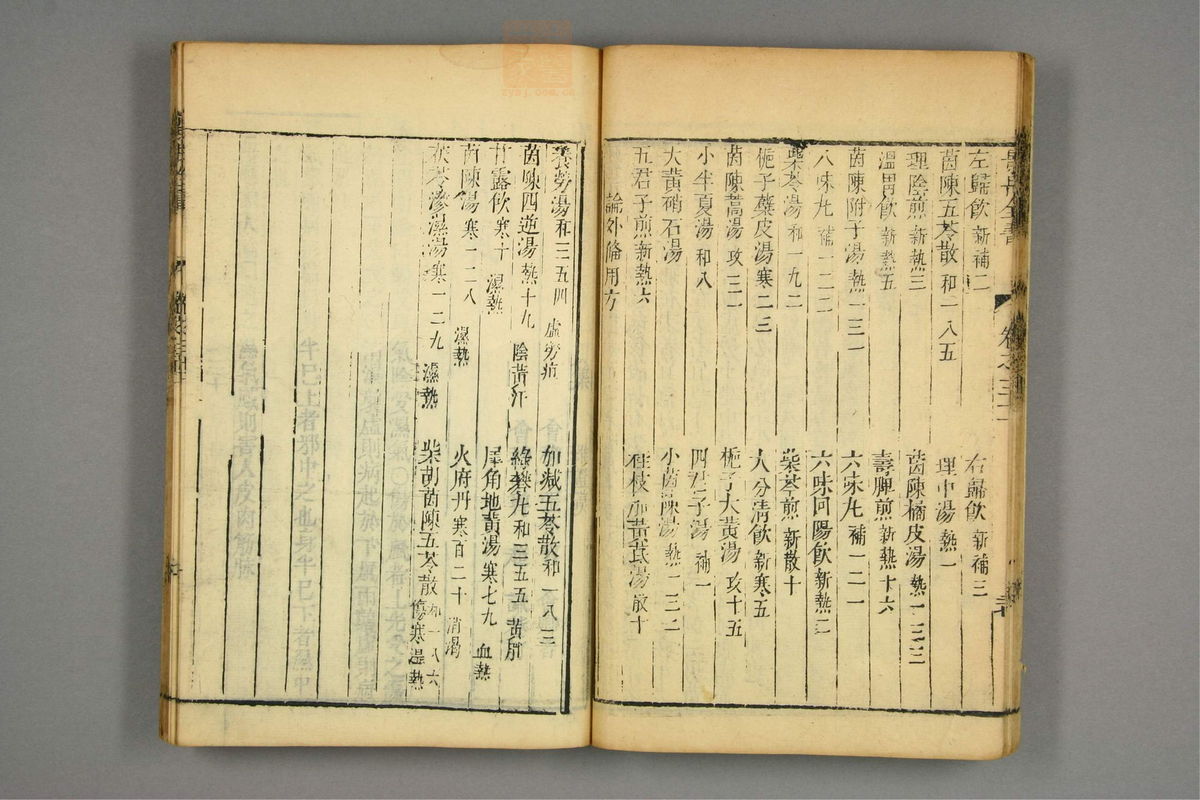 景岳全書 卷之三十一
左歸飲 新補二 右歸飲 新補三
茵陳五苓散 和一八五 理中湯 熱一
理陰煎 新熱三 茵陳橘皮湯 熱一三三
溫胃飲 新熱五 壽脾煎 新熱十六
茵陳附子湯 熱一三一 六味丸 補一二一
八味丸 補一二二 六味回陽飲 新熱二
柴苓湯 和一九二 柴苓煎 新散十
梔子蘗皮湯 寒二三 大分清飲 新寒五
茵陳蒿湯 攻三一 梔子大黃湯 攻十五
小半夏湯 和八 四君子湯 補一
大黃硝石湯 小茵陳湯 熱一三二
五君子煎 新熱六 桂枝加黃芪湯 散十
論外備用方
養勞湯 和三五四 虛勞疸 加減五苓散 和一八三
茵陳四逆湯 熱十九 陰黃汗 綠礬丸 和三五五 黃腫
甘露飲 寒十 濕熱 犀角地黃湯 寒七九 血熱
茵陳湯 寒一二八 濕熱 火府丹 寒百二十 消渴
茯苓滲濕湯 寒一二九 濕熱 柴胡茵陳五苓散 和一八六 傷寒溫熱